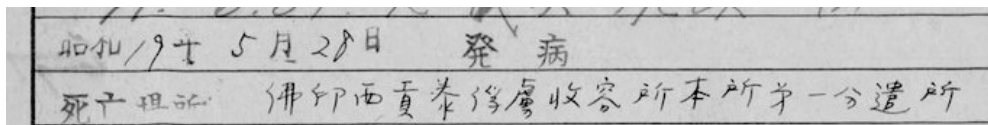 昭和19年5月28日 発病
死亡場所 佛印西貢泰俘虜收容所本所第一分遣所